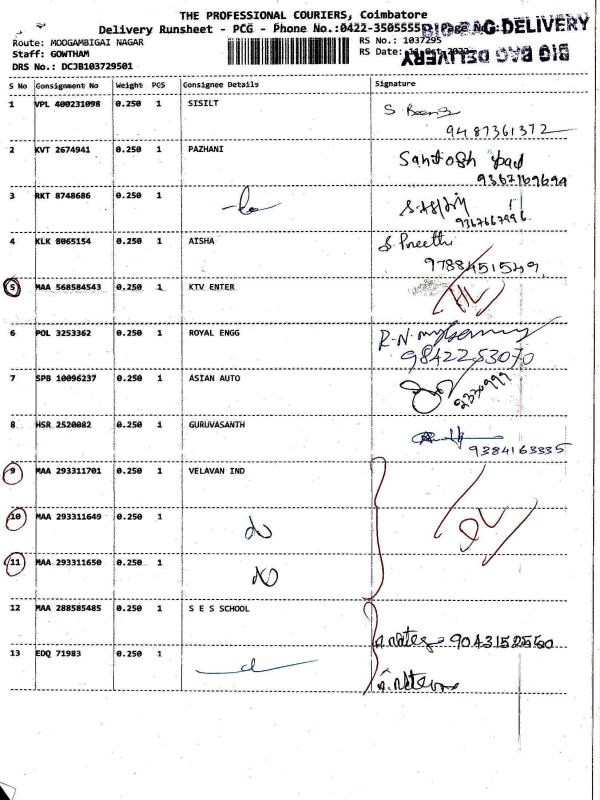 THE PROFESSIONAL COURIERS, Coimbatore
Delivery Runsheet - PCG - Phone No.:0422-3505555 Page No:
BIG BAG DELIVERY
BIG BAG DELIVERY
Route: MOOGAMBIGAI NAGAR RS No.: 1037295
Staff: GOWTHAM RS Date: 11 Oct
DRS No.: DCJB103729501
S No Consignment No Weight PCS Consignee Details Signature
1 VPL 400231098 0.250 1 SISILT S
9487361372
2 KVT 2674941 0.250 1 PAZHANI Santosh
3 RKT 8748686 0.250 1
9367667996
4 KLK 8065154 0.250 1 AISHA S. Preethi
9788451549
5 MAA 568584543 0.250 1 KTV ENTER
6 POL 3253362 0.250 1 ROYAL ENGG R.N.
9842253070
7 SPB 10096237 0.250 1 ASIAN AUTO
8 HSR 2520082 0.250 1 GURUVASANTH
9384163335
9 MAA 293311701 0.250 1 VELAVAN IND
10 MAA 293311649 0.250 1 do
DL
11 MAA 293311650 0.250 1 do
12 MAA 288585485 0.250 1 S E S SCHOOL
13 EDQ 71983 0.250 1